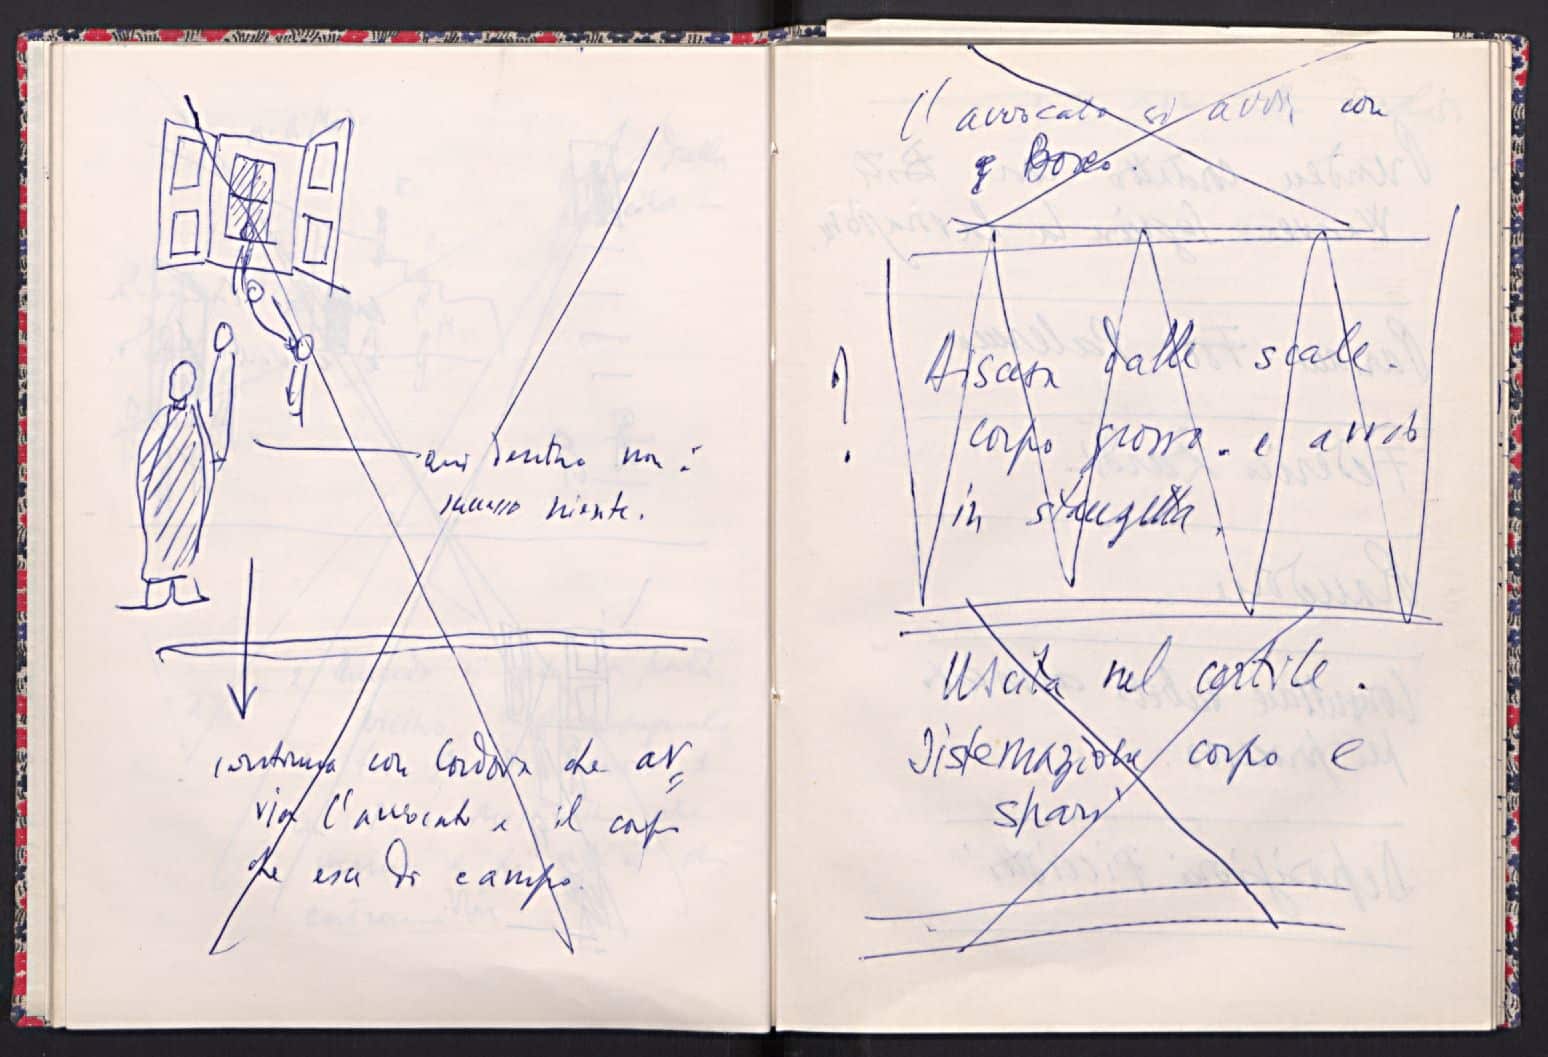 qui dentro non è
successo niente.
continua con Cordova che av=
via l'avvocato e il corpo
che esce di campo.
Il avvocato si avvia con
Bosco.
Discesa dalle scale.
corpo grosso. e arrivo
in
Uscita nel cortile.
Sistemazione corpo e
spari